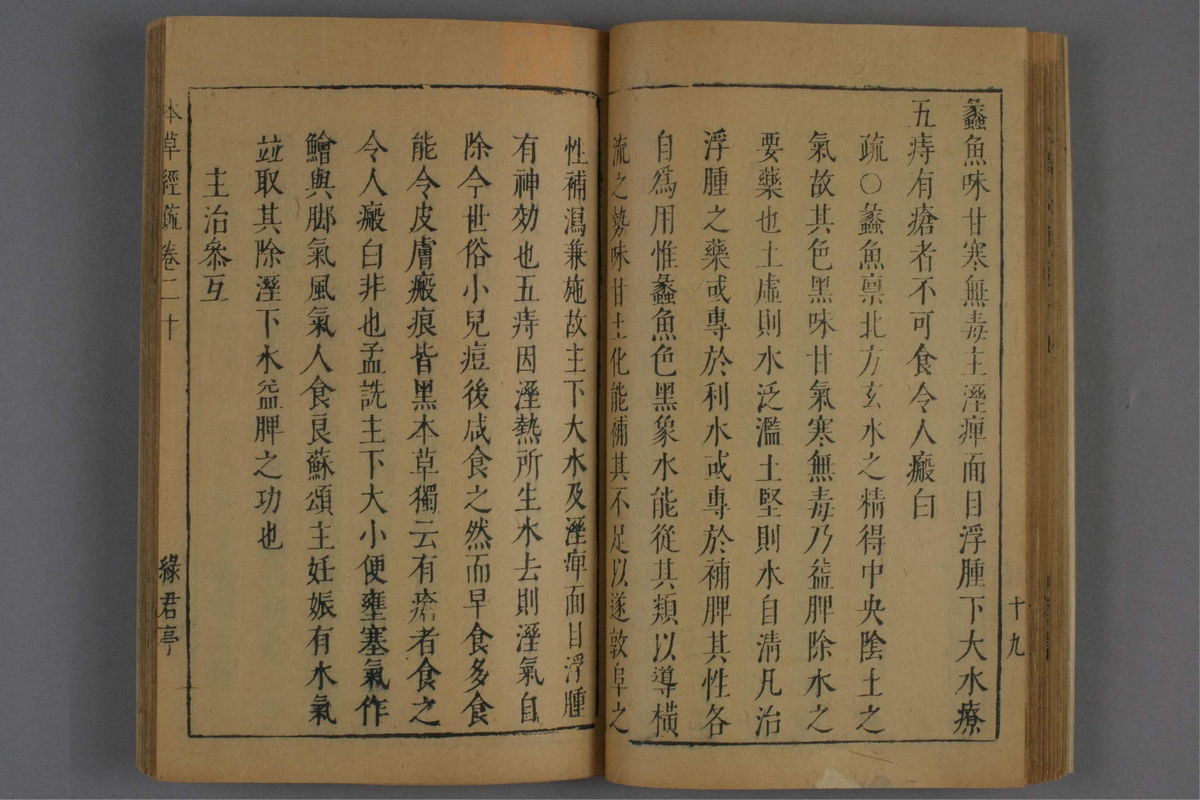 蠡魚味甘寒無毒主溼痺面目浮腫下大水療
五痔有瘡者不可食令人瘢白
疏○蠡魚禀北方玄水之精得中央陰土之
氣故其色黑味甘氣寒無毒乃益脾除水之
要藥也土虛則水泛濫土堅則水自清凡治
浮腫之藥或專於利水或專於補脾其性各
自爲用惟蠡魚色黑象水能從其類以導橫
流之勢味甘土化能補其不足以遂敦阜之
性補瀉兼施故主下大水及溼痺面目浮腫
有神効也五痔因溼熱所生水去則溼氣自
除今世俗小兒痘後咸食之然而早食多食
能令皮膚瘢痕皆黑本草獨云有瘡者食之
令人瘢白非也孟詵主下大小便壅塞氣作
鱠與脚氣風氣人食良蘇頌主妊娠有水氣
並取其除溼下水益脾之功也
主治叅互
十九
本草經疏卷二十
綠君亭